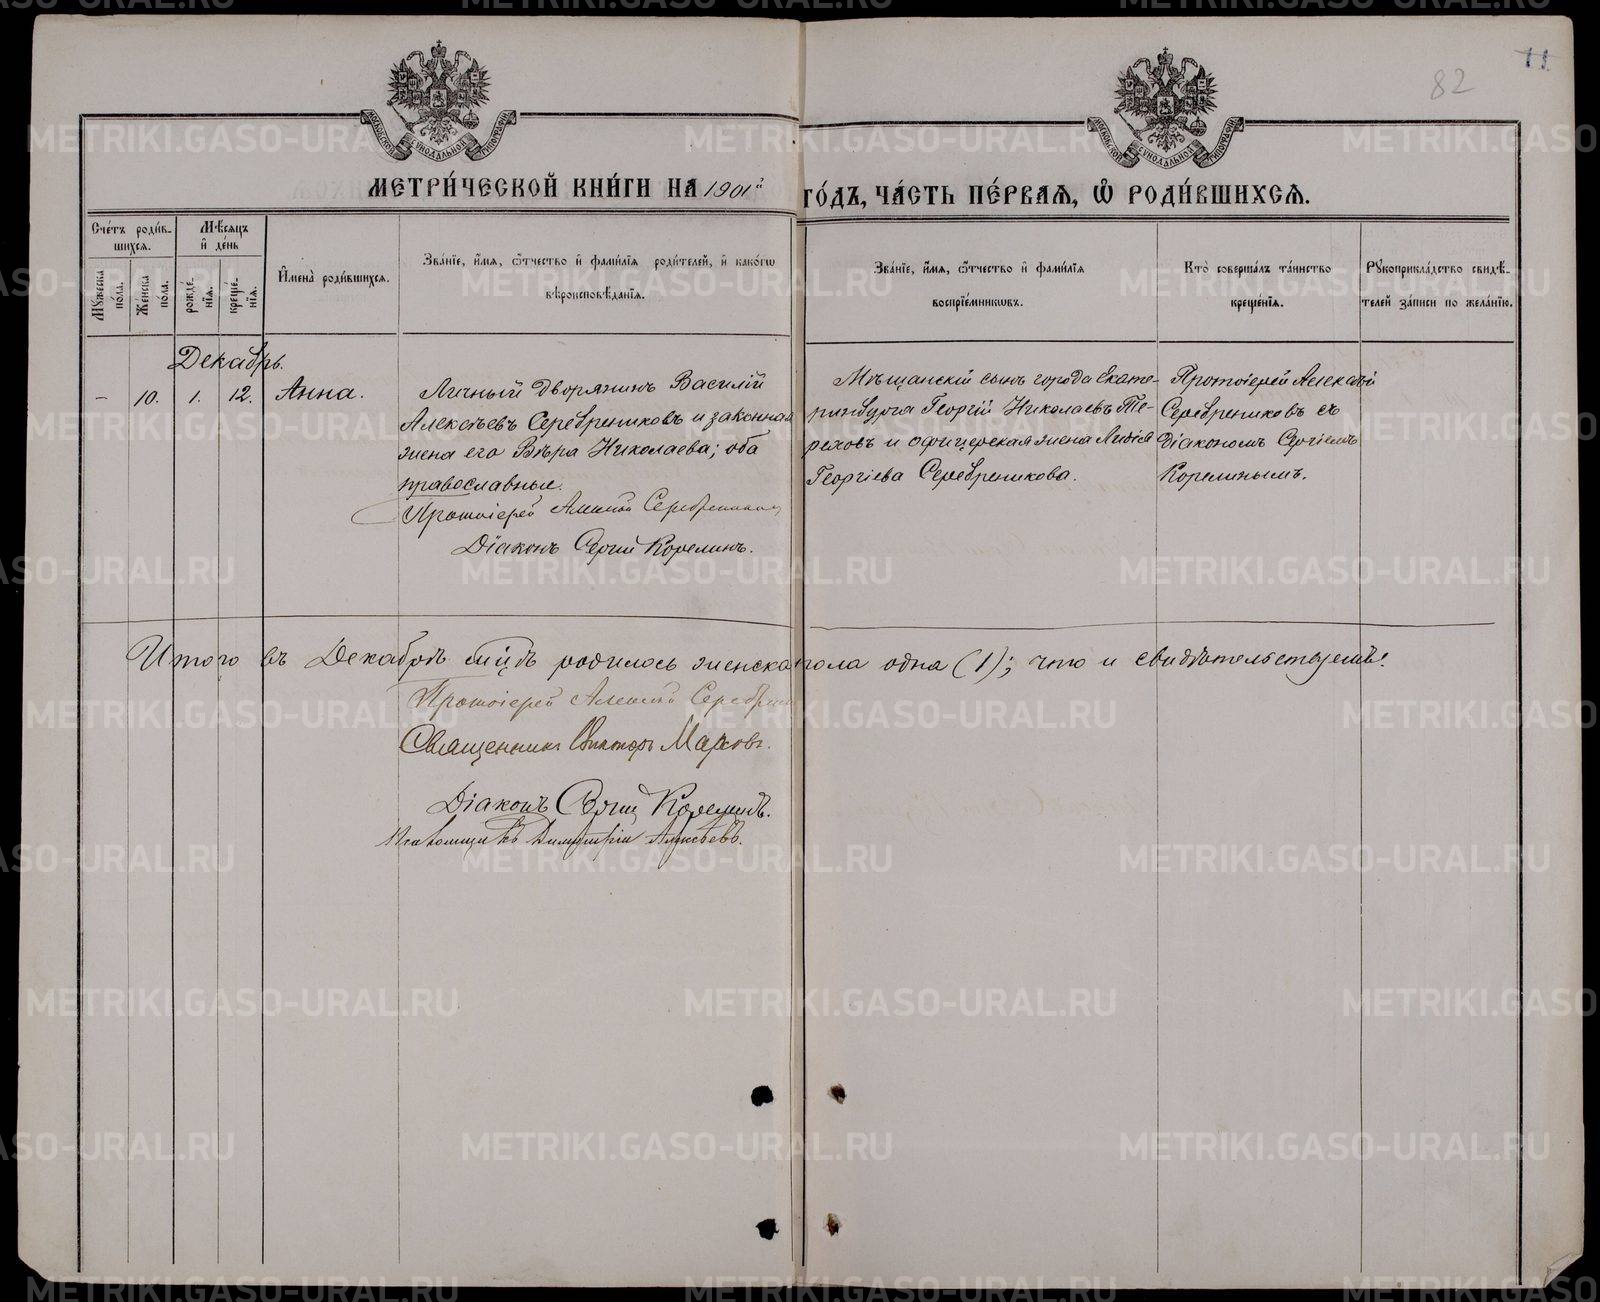 82
11.
МОСКОВСКОЙ СѴНОДАЛЬНОЙ ТИПОГРАФІИ
МОСКОВСКОЙ СѴНОДАЛЬНОЙ ТИПОГРАФІИ
МЕТРИ́ЧЕСКОЙ КНИ́ГИ НА 1901й ГО́ДЪ, ЧА́СТЬ ПЕ́РВАЯ, Ѡ҆ РОДИ́ВШИХСЯ.
Сче́тъ роди́в-
шихся.
Мѣ́сяцъ
и҆ де́нь
Му́жеска
по́ла.
Же́нска
по́ла.
рожде́-
нїя.
креще́-
нїя.
И҆мена̀ роди́вшихся.
Зва́нїе, и҆́мя, ѻ҆́тчество и҆ фами́лїя роди́телей, и҆ како́гѡ
вѣроисповѣ́данїя.
Зва́нїе, и҆́мя, ѻ҆́тчество и҆ фами́лїя
воспрїе́мниковъ.
Кто̀ соверша́лъ та́инство
креще́нїя.
Рꙋкоприкла́дство свидѣ́-
телей за́писи по жела́нїю.
Декабрь.
– 10. 1. 12. Анна.
Личный дворянинъ Василій
Алексѣевъ Серебрениковъ и законная
жена его Вѣра Николаева; оба
православные.
Протоіерей Алексій Серебрениковъ
Діаконъ Сергій Корелинъ.
Мѣщанскій сынъ города Екате-
ринбурга Георгій Николаевъ Те-
реховъ и офицерская жена Лидія
Георгіева Серебреникова.
Протоіерей Алексѣй
Серебрениковъ съ
діакономъ Сергіемъ
Корелинымъ.
Итого въ Декабрѣ мцѣ родилось женска пола одна (1); что и свидѣтельствуемъ:
Протоіерей Алексій Серебрен
Священникъ Викторъ Марковъ.
Діаконъ Сергій Корелинъ.
Псаломщикъ Димитрій Алексѣевъ.